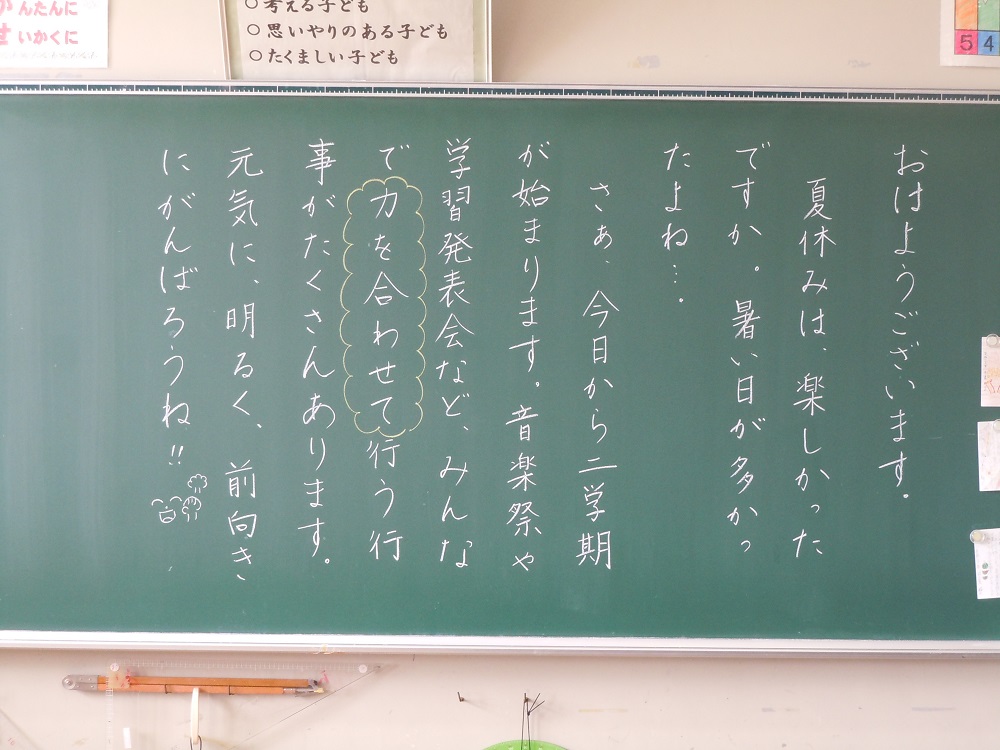 かんたんに
せいかくに
○考える子ども
○思いやりのある子ども
○たくましい子ども
5 4
おはようございます。
夏休みは、楽しかった
ですか。暑い日が多かっ
たよね…。
さぁ、今日から二学期
が始まります。音楽祭や
学習発表会など、みんな
で力を合わせて行う行
事がたくさんあります。
元気に、明るく、前向き
にがんばろうね!!